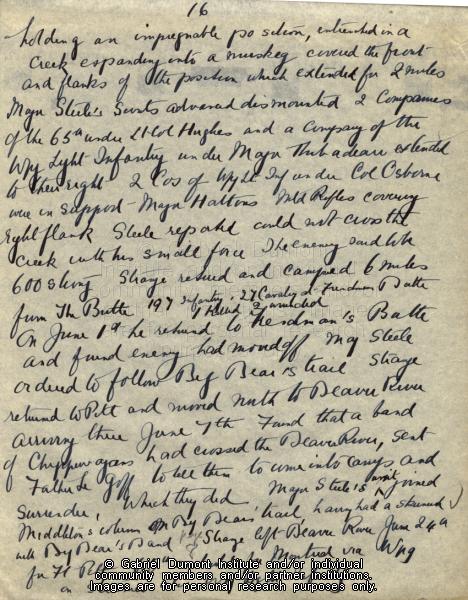 16
holding an impregnable position, entrenched in a
Creek expanding into a muskeg covered the front
and flanks of the position which extended for 2 miles
Major Steele's Scouts advanced dismounted 2 Companies
of the 65th under Lt Col Hughes and a Company of the
Wpg Light Infantry under Major Thibadeau extended
to their right 2 Cos of Wpg Lt Inf under Col Osborne
were in support - Major Hattons Mtd Rifles covering
right flank Steele reported could not cross the
Creek with his small force The enemy said to be
600 strong Strange retired and camped 6 miles
from the Butte 197 Infantry, 27 Cavalry at Frenchman Butte
1 killed 2 wounded
On June 1st he returned to Frenchman's Butte
and found enemy had moved off Maj Steele
ordered to follow Big Bear's trail Strange
returned to Pitt and moved north to Beaver River
arriving there June 7th Found that a band
of Chippewayans had crossed the Beaver River, sent
Father Le Goff to tell them to come into camp and
Surrender, which they did Major Steele's having joined
Middleton's column on Big Bear's trail, having had a skirmish
with Big Bear's Band Strange left Beaver River June 24th
for Ft Pitt Montreal via Wpg
on
© Gabriel Dumont Institute and/or individual
community members and/or partner institutions.
Images are for personal research purposes only.